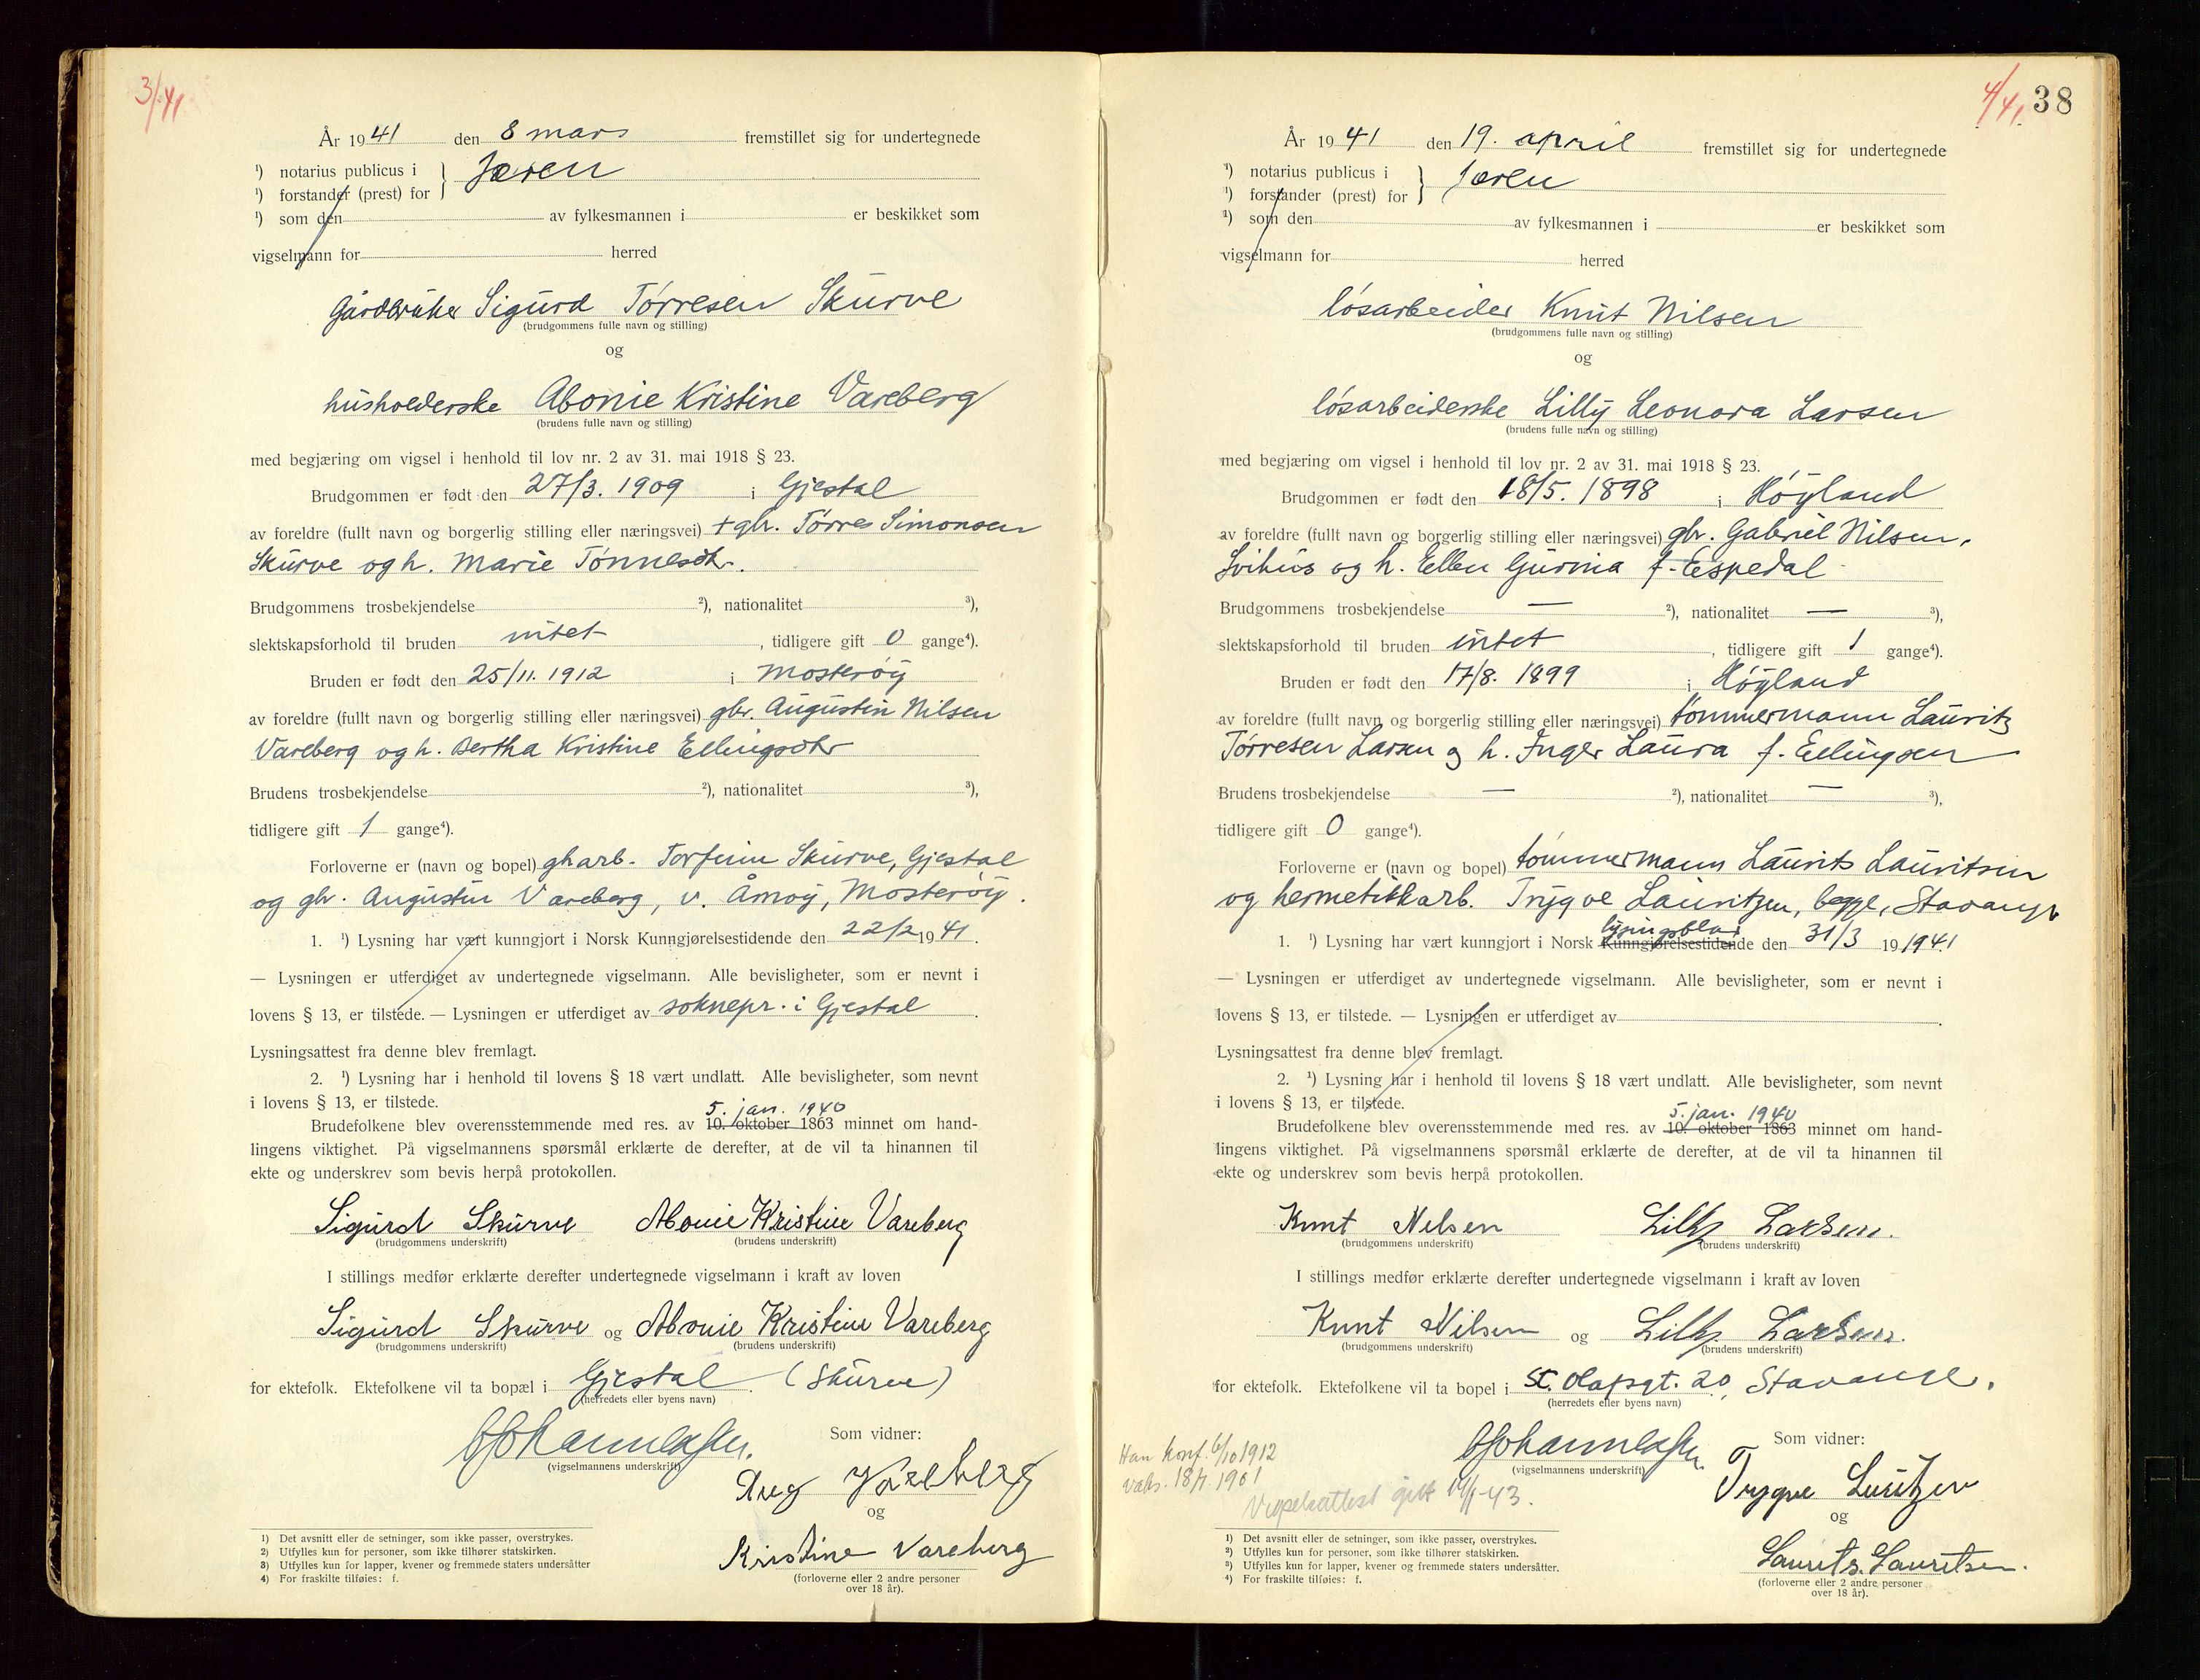 3/41
År 1941 den 8 mars fremstillet sig for undertegnede
¹) notarius publicus i
¹) forstander (prest) for } Jæren
¹) som den av fylkesmannen i er beskikket som
vigselmann for herred
Gårdbruker Sigurd Tørresen Skurve
(brudgommens fulle navn og stilling)
og
husholderske Abonie Kristine Vareberg
(brudens fulle navn og stilling)
med begjæring om vigsel i henhold til lov nr. 2 av 31. mai 1918 § 23.
Brudgommen er født den 27/3. 1909 i Gjestal
av foreldre (fullt navn og borgerlig stilling eller næringsvei) + gbr. Tørres Simonsen
Skurve og h. Marie Tønnesdtr.
Brudgommens trosbekjendelse ²), nationalitet ³),
slektskapsforhold til bruden intet, tidligere gift 0 gange⁴).
Bruden er født den 25/11. 1912 i Mosterøy
av foreldre (fullt navn og borgerlig stilling eller næringsvei) gbr. Augustin Nilsen
Vareberg og h. Bertha Kristine Ellingsdtr
Brudens trosbekjendelse ²), nationalitet ³),
tidligere gift 1 gange⁴).
Forloverne er (navn og bopel) gbarb. Torfinn Skurve, Gjestal
og gbr. Augustin Vareberg, v. Åmøy, Mosterøy.
1. ¹) Lysning har vært kunngjort i Norsk Kunngjørelsestidende den 22/2 1941.
— Lysningen er utferdiget av undertegnede vigselmann. Alle bevisligheter, som er nevnt i
lovens § 13, er tilstede. — Lysningen er utferdiget av soknepr. i Gjestal.
Lysningsattest fra denne blev fremlagt.
2. ¹) Lysning har i henhold til lovens § 18 vært undlatt. Alle bevisligheter, som nevnt
i lovens § 13, er tilstede.
5. jan. 1940
Brudefolkene blev overensstemmende med res. av 10. oktober 1863 minnet om hand-
lingens viktighet. På vigselmannens spørsmål erklærte de derefter, at de vil ta hinannen til
ekte og underskrev som bevis herpå protokollen.
Sigurd Skurve Abonie Kristine Vareberg
(brudgommens underskrift) (brudens underskrift)
I stillings medfør erklærte derefter undertegnede vigselmann i kraft av loven
Sigurd Skurve og Abonie Kristine Vareberg
(brudgommens underskrift) (brudens underskrift)
for ektefolk. Ektefolkene vil ta bopæl i Gjestal. (Skurve)
(herredets eller byens navn)
Som vidner:
(vigselmannens underskrift)
Aug Vareberg
og
Kristine Vareberg
(forloverne eller 2 andre personer
over 18 år).
1) Det avsnitt eller de setninger, som ikke passer, overstrykes.
2) Utfylles kun for personer, som ikke tilhører statskirken.
3) Utfylles kun for lapper, kvener og fremmede staters undersåtter
4) For fraskilte tilføies: f.
4/41. 38
År 1941 den 19. april fremstillet sig for undertegnede
¹) notarius publicus i
¹) forstander (prest) for } Jæren
²) som den av fylkesmannen i er beskikket som
vigselmann for herred
løsarbeider Knut Nilsen
(brudgommens fulle navn og stilling)
og
løsarbeiderske Lilly Leonora Larsen
(brudens fulle navn og stilling)
med begjæring om vigsel i henhold til lov nr. 2 av 31. mai 1918 § 23.
Brudgommen er født den 18/5. 1898 i Høyland
av foreldre (fullt navn og borgerlig stilling eller næringsvei) gbr. Gabriel Nilsen,
Svihus og h. Ellen Gurina f. Espedal
Brudgommens trosbekjendelse — ²), nationalitet — ³),
slektskapsforhold til bruden intet, tidligere gift 1 gange⁴).
Bruden er født den 17/8. 1899 i Høyland
av foreldre (fullt navn og borgerlig stilling eller næringsvei) tømmermann Lauritz
Tørresen Larsen og h. Inger Laura f. Ellingsen
Brudens trosbekjendelse — ²), nationalitet — ³),
tidligere gift 0 gange⁴).
Forloverne er (navn og bopel) tømmermann Laurits Lauritsen
og hermetikkarb. Trygve Lauritzen, begge, Stavanger
lysingsblad
1. ¹) Lysning har vært kunngjort i Norsk Kunngjørelsestidende den 31/3 19 1941
— Lysningen er utferdiget av undertegnede vigselmann. Alle bevisligheter, som er nevnt i
lovens § 13, er tilstede. — Lysningen er utferdiget av .
Lysningsattest fra denne blev fremlagt.
2. ¹) Lysning har i henhold til lovens § 18 vært undlatt. Alle bevisligheter, som nevnt
i lovens § 13, er tilstede.
5. jan. 1940
Brudefolkene blev overensstemmende med res. av 10. oktober 1863 minnet om hand-
lingens viktighet. På vigselmannens spørsmål erklærte de derefter, at de vil ta hinannen til
ekte og underskrev som bevis herpå protokollen.
Knut Nilsen Lilly Larsen.
(brudgommens underskrift) (brudens underskrift)
I stillings medfør erklærte derefter undertegnede vigselmann i kraft av loven
Knut Nilsen og Lilly Larsen.
(brudgommens underskrift) (brudens underskrift)
for ektefolk. Ektefolkene vil ta bopel i St. Olafsgt. 20, Stavanger.
(herredets eller byens navn)
Som vidner:
(vigselmannens underskrift)
Han konf. 6/10 1912
vaks. 18/7 1901
Vigselsattest gitt -43.
Trygve Lauritzen
og
Laurits. Lauritsen.
(forloverne eller 2 andre personer
over 18 år).
1) Det avsnitt eller de setninger, som ikke passer, overstrykes.
2) Utfylles kun for personer, som ikke tilhører statskirken.
3) Utfylles kun for lapper, kvener og fremmede staters undersåtter.
4) For fraskilte tilføies: f.